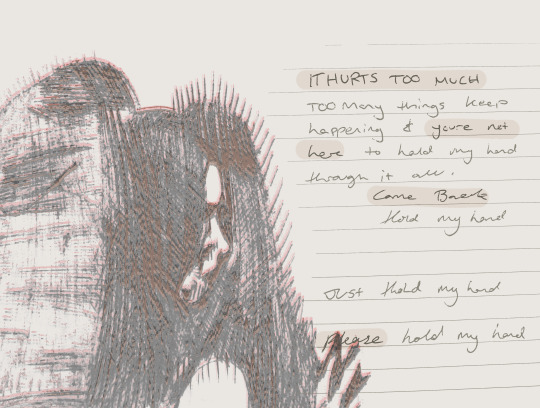 IT HURTS TOO MUCH
TOO Many things keep
happening & you're not
here to hold my hand
through it all.
Come Back
Hold my hand
Just Hold my hand
please hold my hand